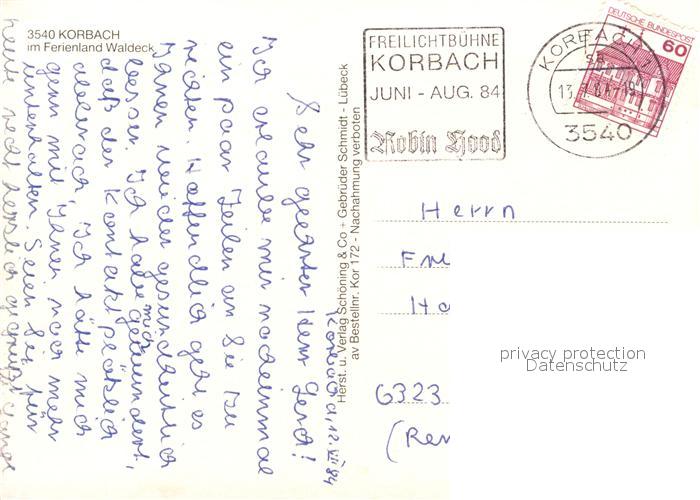 3540 KORBACH
im Ferienland Waldeck
Korbach, 12. VII 84
Sehr geehrter Herr
Ich erlaube mir nocheinmal
ein paar Zeilen an Sie zu
richten. Hoffendlich geht es
Ihnen wieder gesundheitlich
besser. Ich habe mich gewundert,
daß der Kontakt plötzlich
abbrach. Ich hätte mich
gern mit Ihnen noch mehr
unterhalten. Seien Sie für
heute recht herzlich gegrüßt
Herst. u. Verlag Schöning & Co + Gebrüder Schmidt - Lübeck
av Bestellnr. Kor 172 - Nachahmung verboten
FREILICHTBÜHNE
KORBACH
JUNI - AUG. 84
Robin Hood
KORBACH 1
3540
DEUTSCHE BUNDESPOST
60
Herrn
6323
privacy protection
Datenschutz